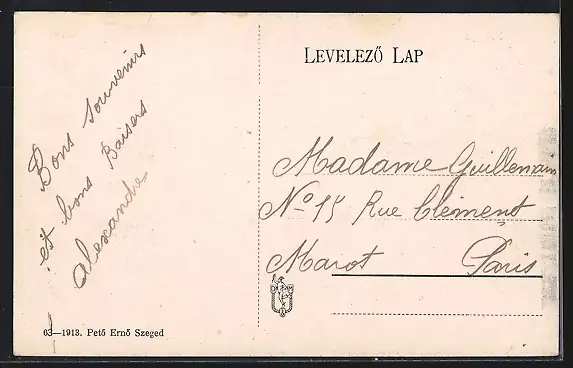 LEVELEZŐ LAP
Bons souvenirs
et bons Baisers
Alexandre
Madame Guillemain
No 15 Rue Clément
Marot Paris
63—1913. Pető Ernő Szeged